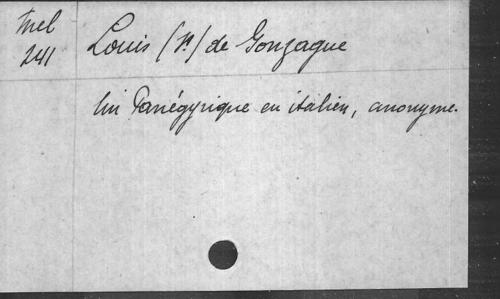 Mel
241
Louis (St) de Gonzague
Un Panégyrique en italien, anonyme.